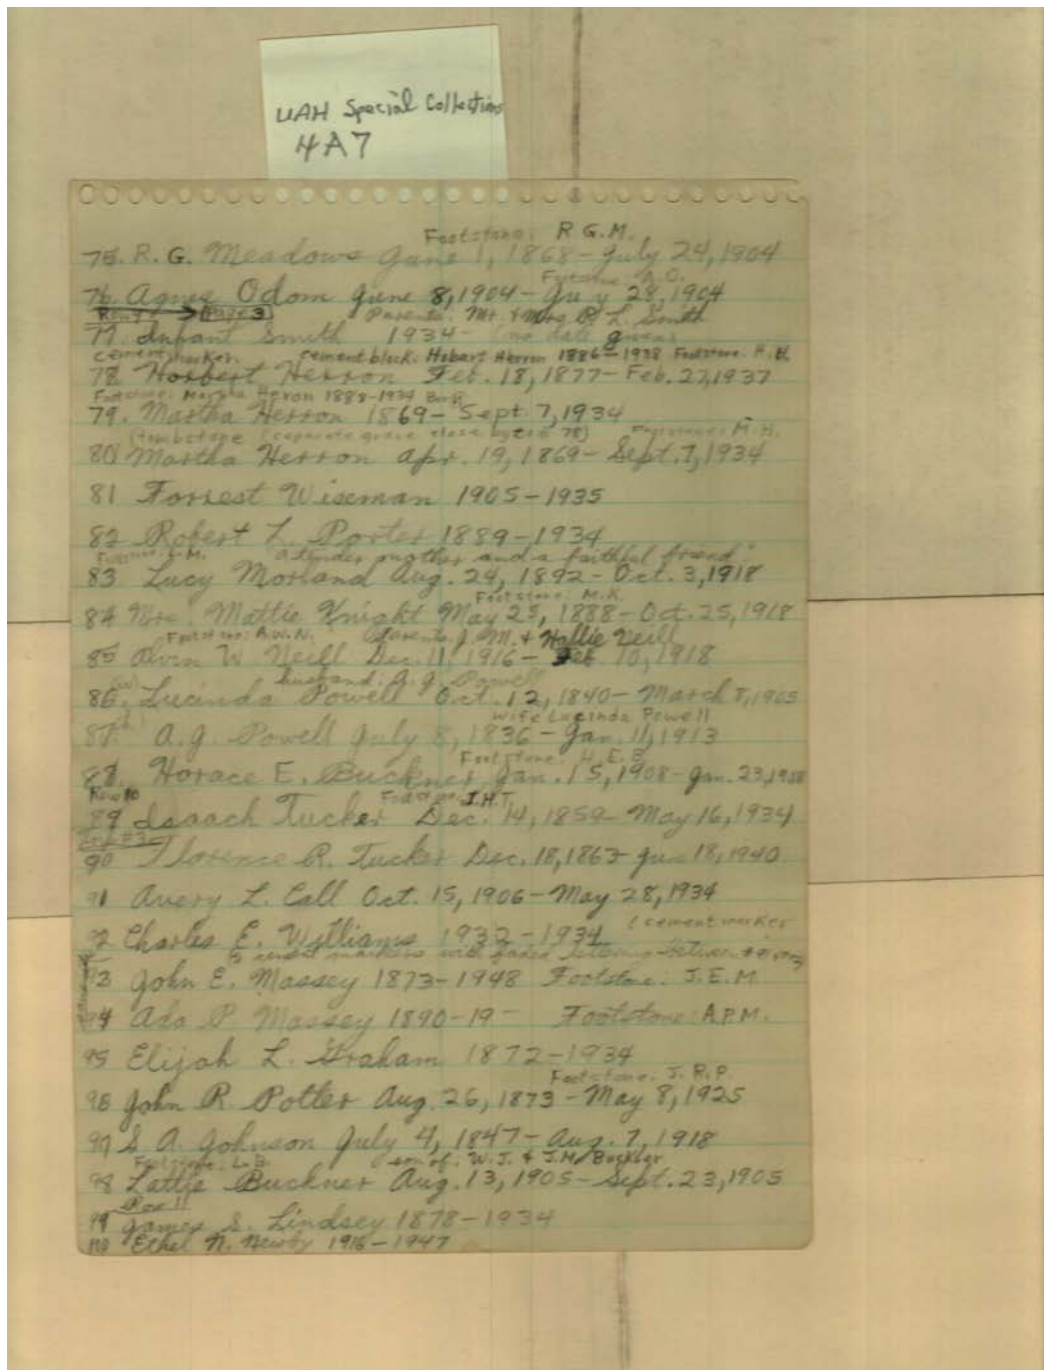 UAH Special Collections
4A7
Footstone: R G.M.
75. R. G. Meadows June 1, 1868 - July 24, 1904
Footstone: A.O.
76. Agnes Odom June 8, 1904 - July 28, 1904
Row 9 → Page 3 Parents: Mr. & Mrs. R. L. Smith
77. Infant Smith 1934 - (no date given)
cement marker. cement block: Hobart Herron 1886-1938 Footstone: H.H.
78. Horbert Herron Feb. 18, 1877 - Feb. 27, 1937
Footstone: Martha Heron 1888-1934
79. Martha Herron 1869 - Sept. 7, 1934
Tombstone (separate grave close by to 78) Footstone: M.H.
80 Martha Herron Apr. 19, 1869 - Sept. 7, 1934
81 Forrest Wiseman 1905 - 1935
82 Robert L. Porter 1889 - 1934
Footstone: L.M. "a tender mother and a faithful friend"
83 Lucy Morland Aug. 24, 1892 - Oct. 3, 1918
Footstone: M.K.
84 Mrs. Mattie Knight May 25, 1888 - Oct. 25, 1918
Footstone: A.W.N. Parents J. M. & Hallie Neill
85 Alvin W. Neill Dec. 11, 1916 - Feb 10, 1918
husband: A. J. Powell
86. Lucinda Powell Oct. 12, 1840 - March 8, 1905
wife Lucinda Powell
87. A. J. Powell July 8, 1836 - Jan. 11, 1913
Footstone: H.E.B
88. Horace E. Buckner Jan. 15, 1908 - Jan. 23, 1908
Row 10 Footstone: I.H.T.
89 Isaach Tucker Dec. 14, 1859 - May 16, 1934
90 Florence R. Tucker Dec. 18, 1863 - June 18, 1940
91 Avery L. Call Oct. 15, 1906 - May 28, 1934
92 Charles E. Williams 1932 - 1934 (cement marker
cement markers with faded lettering between
93 John E. Massey 1873 - 1948 Footstone: J.E.M.
94 Ada P. Massey 1890 - 19- Footstone: A.P.M.
95 Elijah L. Graham 1872 - 1934
Footstone: J. R. P.
96 John R. Potter Aug. 26, 1873 - May 8, 1925
97 S. A. Johnson July 4, 1847 - Aug. 7, 1918
Footstone: L.B. son of: W. J. & J.M. Buckner
98 Lattie Buckner Aug. 13, 1905 - Sept. 23, 1905
Row 11
99 James S. Lindsey 1878 - 1934
100 Ethel N. Newby 1916 - 1947